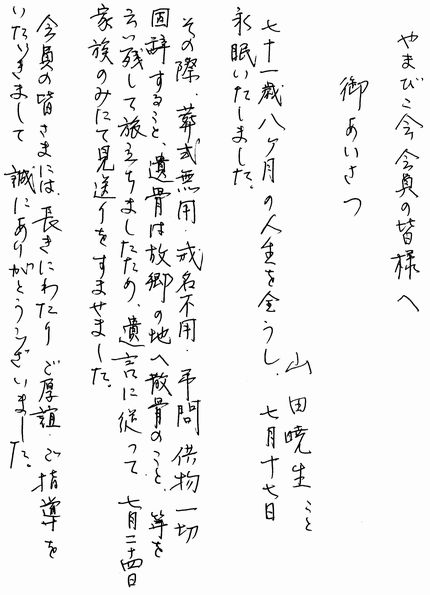 やまびこ会会員の皆様へ
御あいさつ
山田暁生こと
七十一歳八ヶ月の人生を全うし、七月十七日
永眠いたしました。
その際、葬式無用・戒名不用・弔問供物一切
固辞すること、遺骨は故郷の地へ散骨のこと、等を
言い残して旅立ちましたため、遺言に従って、七月二十四日
家族のみにて見送りをすませました。
会員の皆さまには、長きにわたりご厚誼・ご指導を
いただきまして誠にありがとうございました。